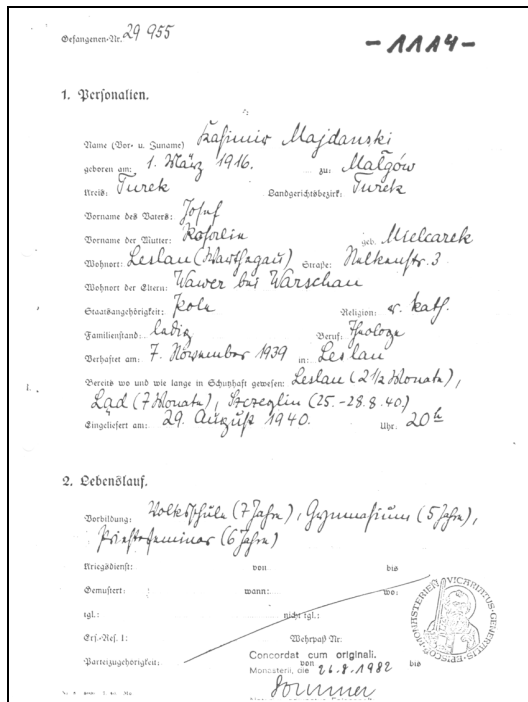 Gefangenen-Nr. 29 955
-1114-
1. Personalien.
Name (Vor- u. Zuname) Kasimir Majdanski
geboren am: 1. März 1916. zu: Malgów
Kreis: Turek Landgerichtsbezirk: Turek
Vorname des Vaters: Josef
Vorname der Mutter: geb. Mielcarek
Wohnort: Leslau (Warthegau) Straße:
Wohnort der Eltern: Wawer bei Warschau
Staatsangehörigkeit: Pole Religion: r. kath.
Familienstand: ledig Beruf: Theologe
Verhaftet am: 7. November 1939 in: Leslau
Bereits wo und wie lange in Schutzhaft gewesen: Leslau (2 1/2 Monate),
Ląd (7 Monate), Szczeglin (25.-28.8.40.)
Eingeliefert am: 29. August 1940. Uhr: 20h
2. Lebenslauf.
Vorbildung: Volksschule (7 Jahre), Gymnasium (5 Jahre),
Priesterseminar (6 Jahre)
Kriegsdienst: von bis
Gemustert: wann: wo:
tgl.: nicht tgl.:
Ers.-Res. I: Wehrpaß Nr:
Parteizugehörigkeit: von bis
Concordat cum originali.
Monasterii, die 26.8.1982
VICARIATUS GENERALIS EPISCOP. MONASTERIEN.